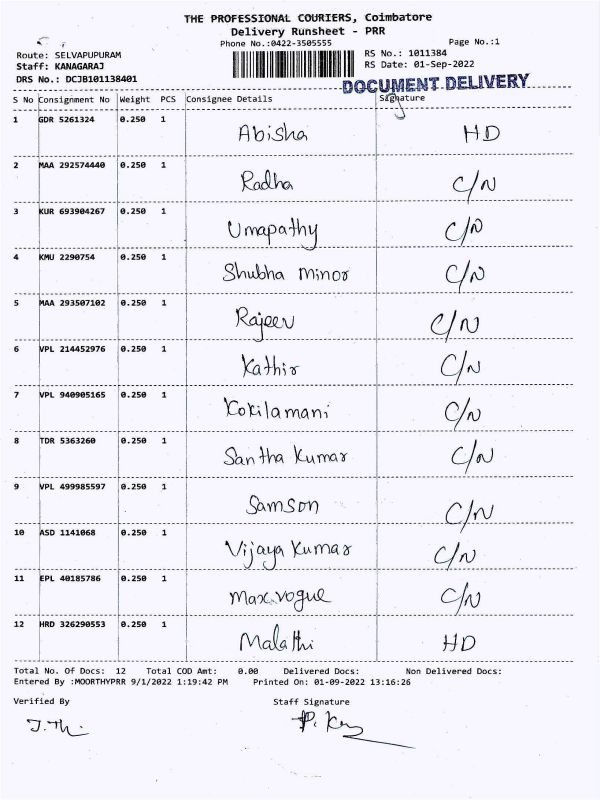 THE PROFESSIONAL COURIERS, Coimbatore
Delivery Runsheet - PRR
Phone No.:0422-3505555 Page No.:1
Route: SELVAPUPURAM RS No.: 1011384
Staff: KANAGARAJ RS Date: 01-Sep-2022
DRS No.: DCJB101138401
DOCUMENT DELIVERY
S No Consignment No Weight PCS Consignee Details Signature
1 GDR 5261324 0.250 1 Abisha HD
2 MAA 292574440 0.250 1 Radha C/N
3 KUR 693904267 0.250 1 Umapathy C/N
4 KMU 2290754 0.250 1 Shubha Minor C/N
5 MAA 293507102 0.250 1 Rajeev C/N
6 VPL 214452976 0.250 1 Kathir C/N
7 VPL 940905165 0.250 1 Kokilamani C/N
8 TDR 5363260 0.250 1 Santha Kumar C/N
9 VPL 499985597 0.250 1 Samson C/N
10 ASD 1141068 0.250 1 Vijaya Kumar C/N
11 EPL 40185786 0.250 1 Max.vogue C/N
12 HRD 326290553 0.250 1 Malathi HD
Total No. Of Docs: 12 Total COD Amt: 0.00 Delivered Docs: Non Delivered Docs:
Entered By :MOORTHYPRR 9/1/2022 1:19:42 PM Printed On: 01-09-2022 13:16:26
Verified By Staff Signature